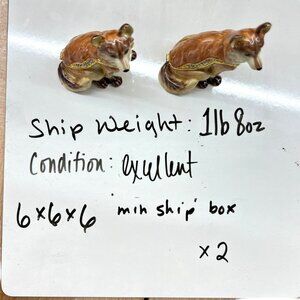 Ship Weight: 1lb 8oz
Condition: excellent
6x6x6 min ship box
x2